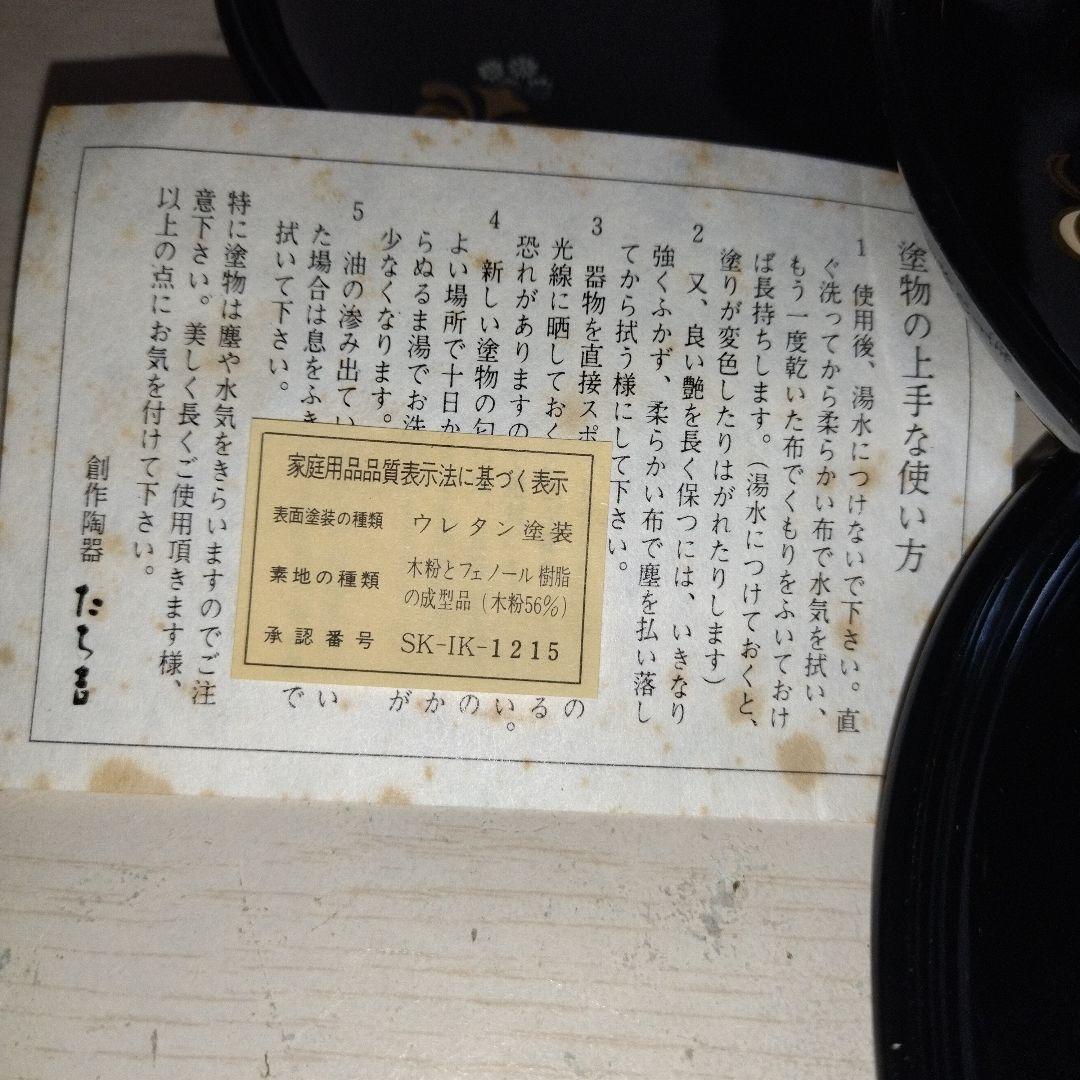 塗物の上手な使い方
1 使用後、湯水につけないで下さい。直
ぐ洗ってから柔らかい布で水気を拭い、
もう一度乾いた布でくもりをふいておけ
ば長持ちします。(湯水につけておくと、
塗りが変色したりはがれたりします)
2 又、良い艶を長く保つには、いきなり
強くふかず、柔らかい布で塵を払い落し
てから拭う様にして下さい。
3 器物を直接スポ
の
光線に晒しておく
る
恐れがありますの
い。
4 新しい塗物の匂
の
よい場所で十日か
か
らぬるま湯でお洗
が
少なくなります。
5 油の滲み出てい
い
た場合は息をふき
で
拭いて下さい。
特に塗物は塵や水気をきらいますのでご注
意下さい。美しく長くご使用頂きます様、
以上の点にお気を付けて下さい。
創作陶器 たち吉
家庭用品品質表示法に基づく表示
表面塗装の種類 ウレタン塗装
素地の種類 木粉とフェノール樹脂
の成型品(木粉56%)
承認番号 SK-IK-1215